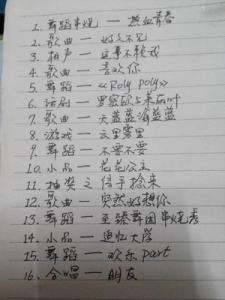 1. 舞蹈串烧 — 热血青春
2. 歌曲 — 好久不见
3. 相声 — 这事不赖我
4. 歌曲 — 喜欢你
5. 舞蹈 — 《Roly poly》
6. 话剧 — 罗密欧与茱丽叶
7. 歌曲 — 天蓝蓝海蓝蓝
8. 游戏 — 云里雾里
9. 舞蹈 — 不要不要
10. 小品 — 花花公主
11. 抽奖之信手捻来
12. 歌曲 — 突然好想你
13. 舞蹈 — 至臻舞团串烧秀
14. 小品 — 追忆大学
15. 舞蹈 — 欢乐part
16. 合唱 — 朋友